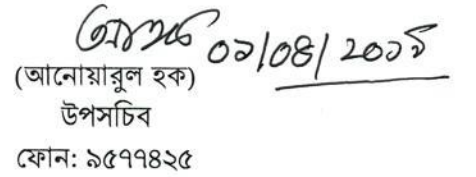 ০১/০৪/২০১৯
(আনোয়ারুল হক)
উপসচিব
ফোন: ৯৫৭৭৪২৫